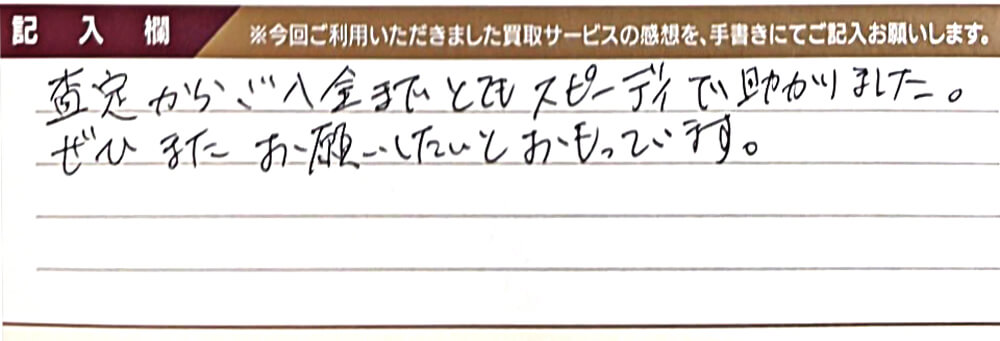 記入欄
※今回ご利用いただきました買取サービスの感想を、手書きにてご記入お願いします。
査定からご入金までとてもスピーディで助かりました。
ぜひまたお願いしたいとおもっています。